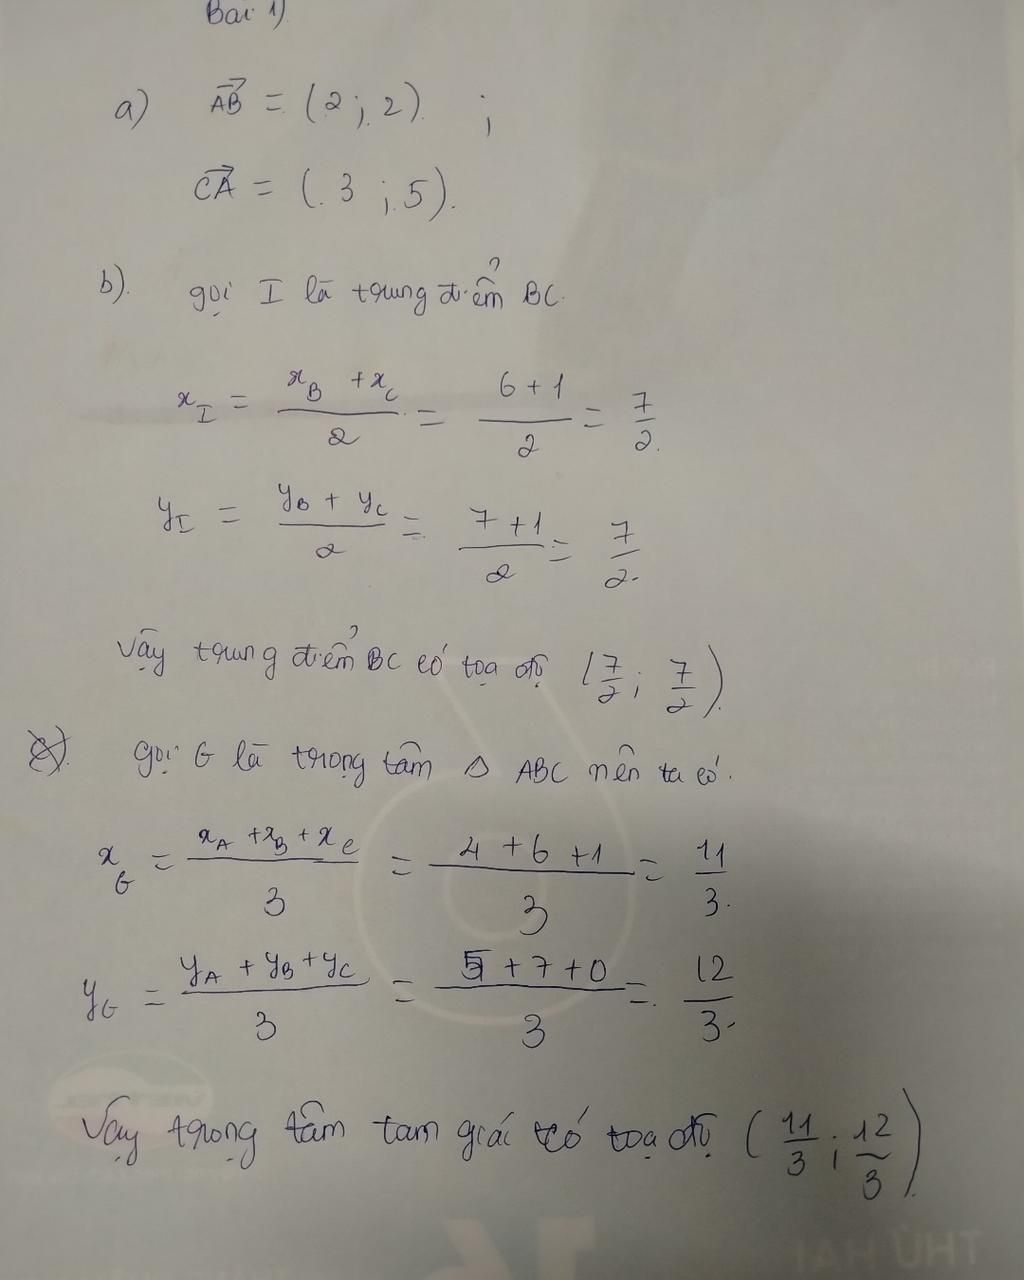 Bài 1)
a) \overrightarrow{AB} = (2 ; 2) ;
\overrightarrow{CA} = (3 ; 5).
b). gọi I là trung điểm BC.
x_I = \frac{x_B + x_C}{2} = \frac{6 + 1}{2} = \frac{7}{2}.
y_I = \frac{y_B + y_C}{2} = \frac{7 + 1}{2} = \frac{7}{2}.
Vậy trung điểm BC có tọa độ (\frac{7}{2} ; \frac{7}{2}).
gọi G là trọng tâm △ ABC nên ta có.
x_G = \frac{x_A + x_B + x_C}{3} = \frac{4 + 6 + 1}{3} = \frac{11}{3}.
y_G = \frac{y_A + y_B + y_C}{3} = \frac{5 + 7 + 0}{3} = \frac{12}{3}.
Vậy trọng tâm tam giác có tọa độ (\frac{11}{3} ; \frac{12}{3}).
THỨ HAI